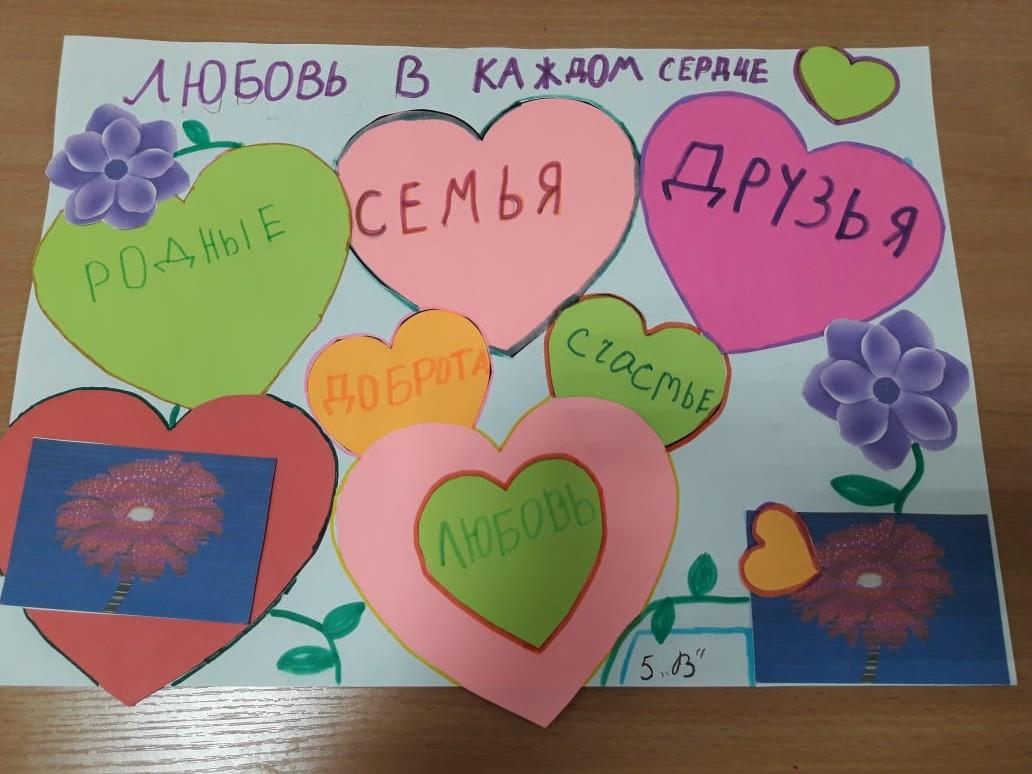 ЛЮБОВЬ В КАЖДОМ СЕРДЦЕ
РОДНЫЕ
СЕМЬЯ
ДРУЗЬЯ
ДОБРОТА
СЧАСТЬЕ
ЛЮБОВЬ
5 „В“